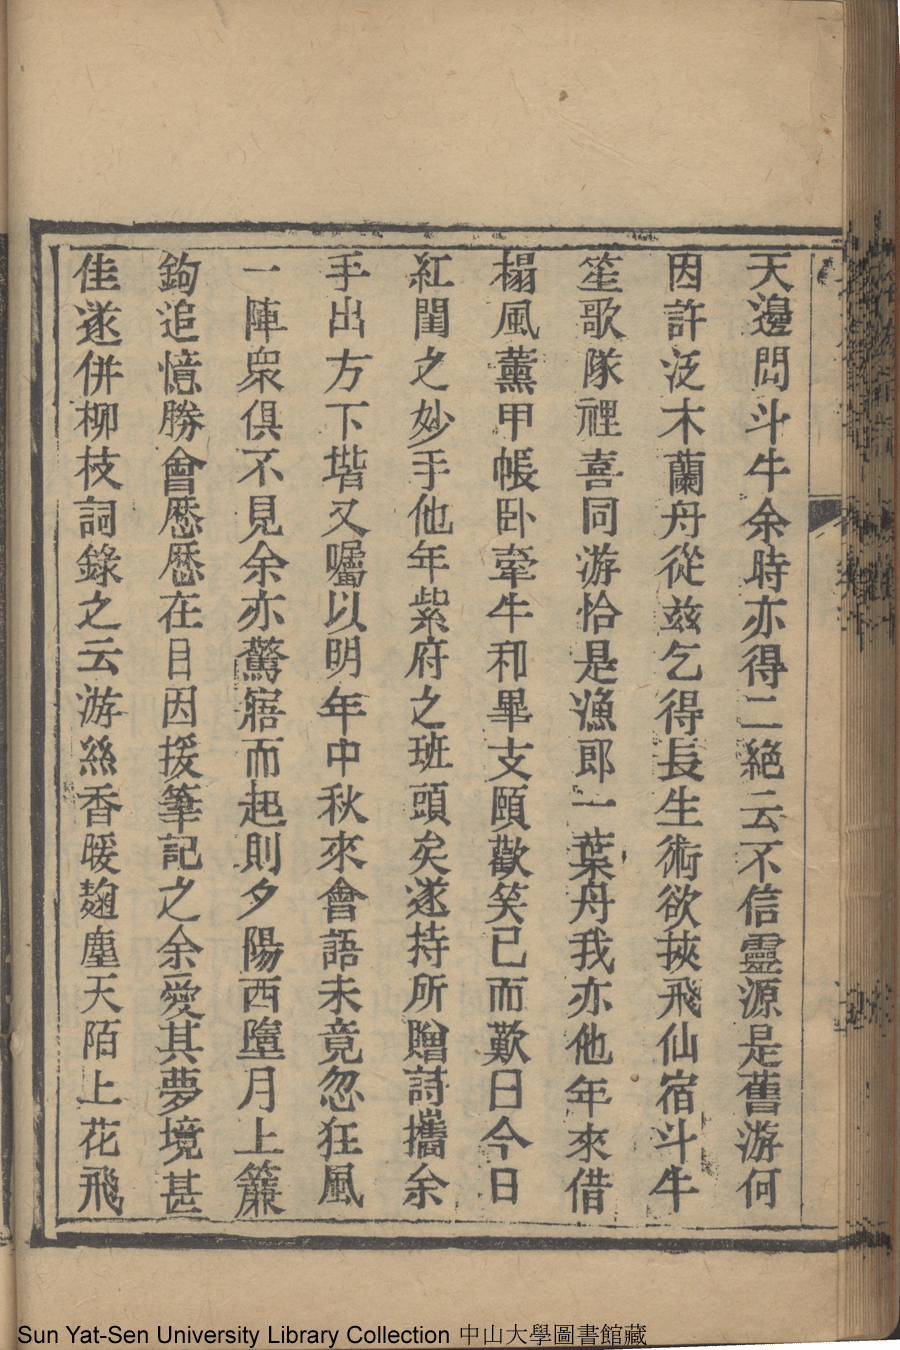 天邊問斗牛余時亦得二絶云不信靈源是舊游何
因許泛木蘭舟從兹乞得長生術欲挾飛仙宿斗牛
笙歌隊裡喜同游恰是漁郎一葉舟我亦他年來借
榻風薰甲帳卧牽牛和畢支頤歡笑已而歎曰今日
紅閨之妙手他年紫府之班頭矣遂持所贈詩攜余
手出方下堦又囑以明年中秋來會語未竟忽狂風
一陣衆俱不見余亦驚寤而起則夕陽西墮月上簾
鉤追憶勝會歷歷在目因援筆記之余愛其夢境甚
佳遂併柳枝詞錄之云游絲香暖麹塵天陌上花飛
Sun Yat-Sen University Library Collection 中山大學圖書館藏